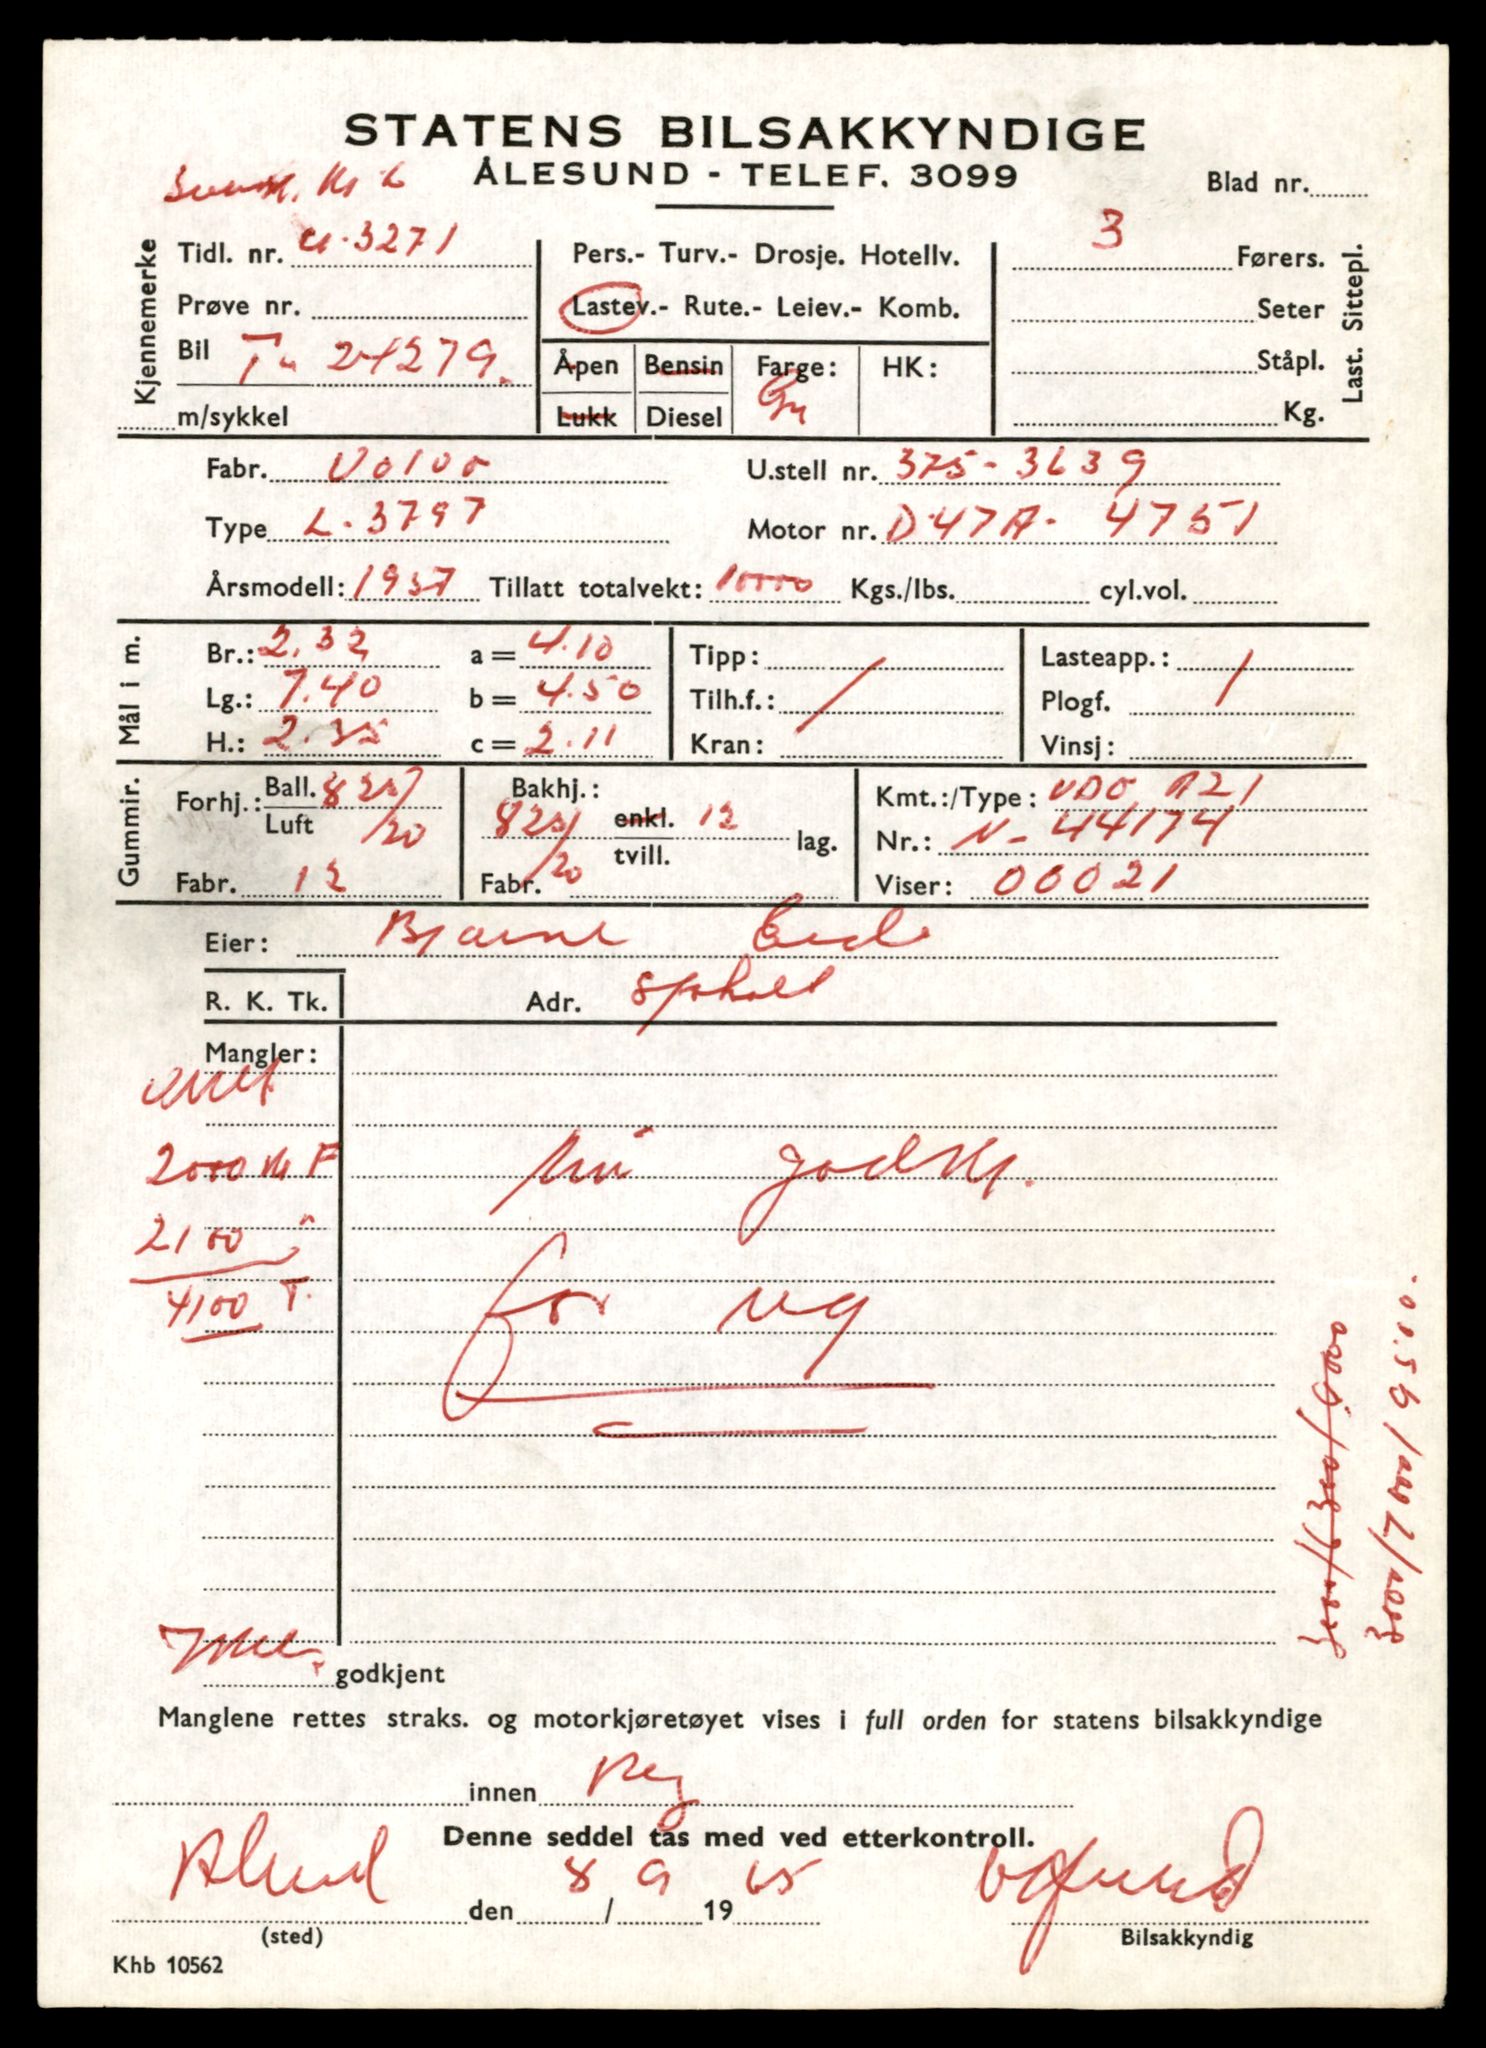 STATENS BILSAKKYNDIGE
ÅLESUND - TELEF. 3099
Blad nr.
Kjennemerke
Tidl. nr. U-3271
Prøve nr.
Bil T- 24279.
m/sykkel
Pers.- Turv.- Drosje. Hotellv.
Lastev.- Rute.- Leiev.- Komb.
Åpen Bensin Farge: HK:
Lukk Diesel Gr
3 Førers.
Seter
Ståpl.
Kg.
Last. Sittepl.
Fabr. Volvo U.stell nr. 375-3639
Type L-3797 Motor nr. D-47A- 4751
Årsmodell: 1957 Tillatt totalvekt: 10000 Kgs./lbs. cyl.vol.
Mål i m.
Br.: 2.32 a = 4.10 Tipp: Lasteapp.:
Lg.: 7.40 b = 4.50 Tilh.f.: / Plogf. /
H.: 2.35 c = 2.11 Kran: Vinsj:
Gummir.
Forhj.: Ball. 825/20 Bakhj.: Kmt.:/Type: VDO A21
Luft 825/20 enkl. 12 lag. Nr.: N-44174
tvill.
Fabr. 12 Fabr. Viser: 00021
Eier: Bjarne Eide
R. K. Tk. Adr. Sjøholt
Mangler:
2000 kg F
2100 "
4100 T.
godkj.
for
godkjent
Manglene rettes straks. og motorkjøretøyet vises i full orden for statens bilsakkyndige
innen Reg
Denne seddel tas med ved etterkontroll.
Ålesund den 8 / 9 1965
(sted) Bilsakkyndig
Khb 10562